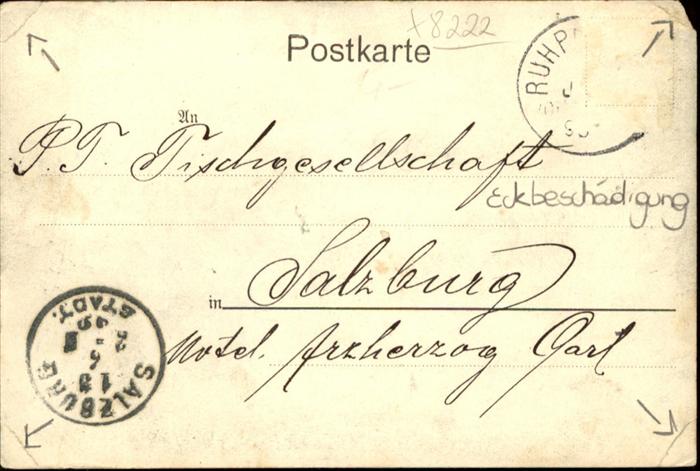 +8222
Postkarte
RUHP
An
P.T. Tischgesellschaft
Eckbeschädigung
in Salzburg
Hotel. Erzherzog Carl
SALZBURG
STADT.